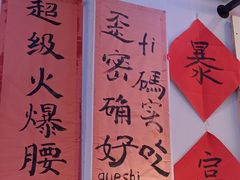 超级火爆腰
歪密确好
fi碼实吃
gueshi
暴
宫